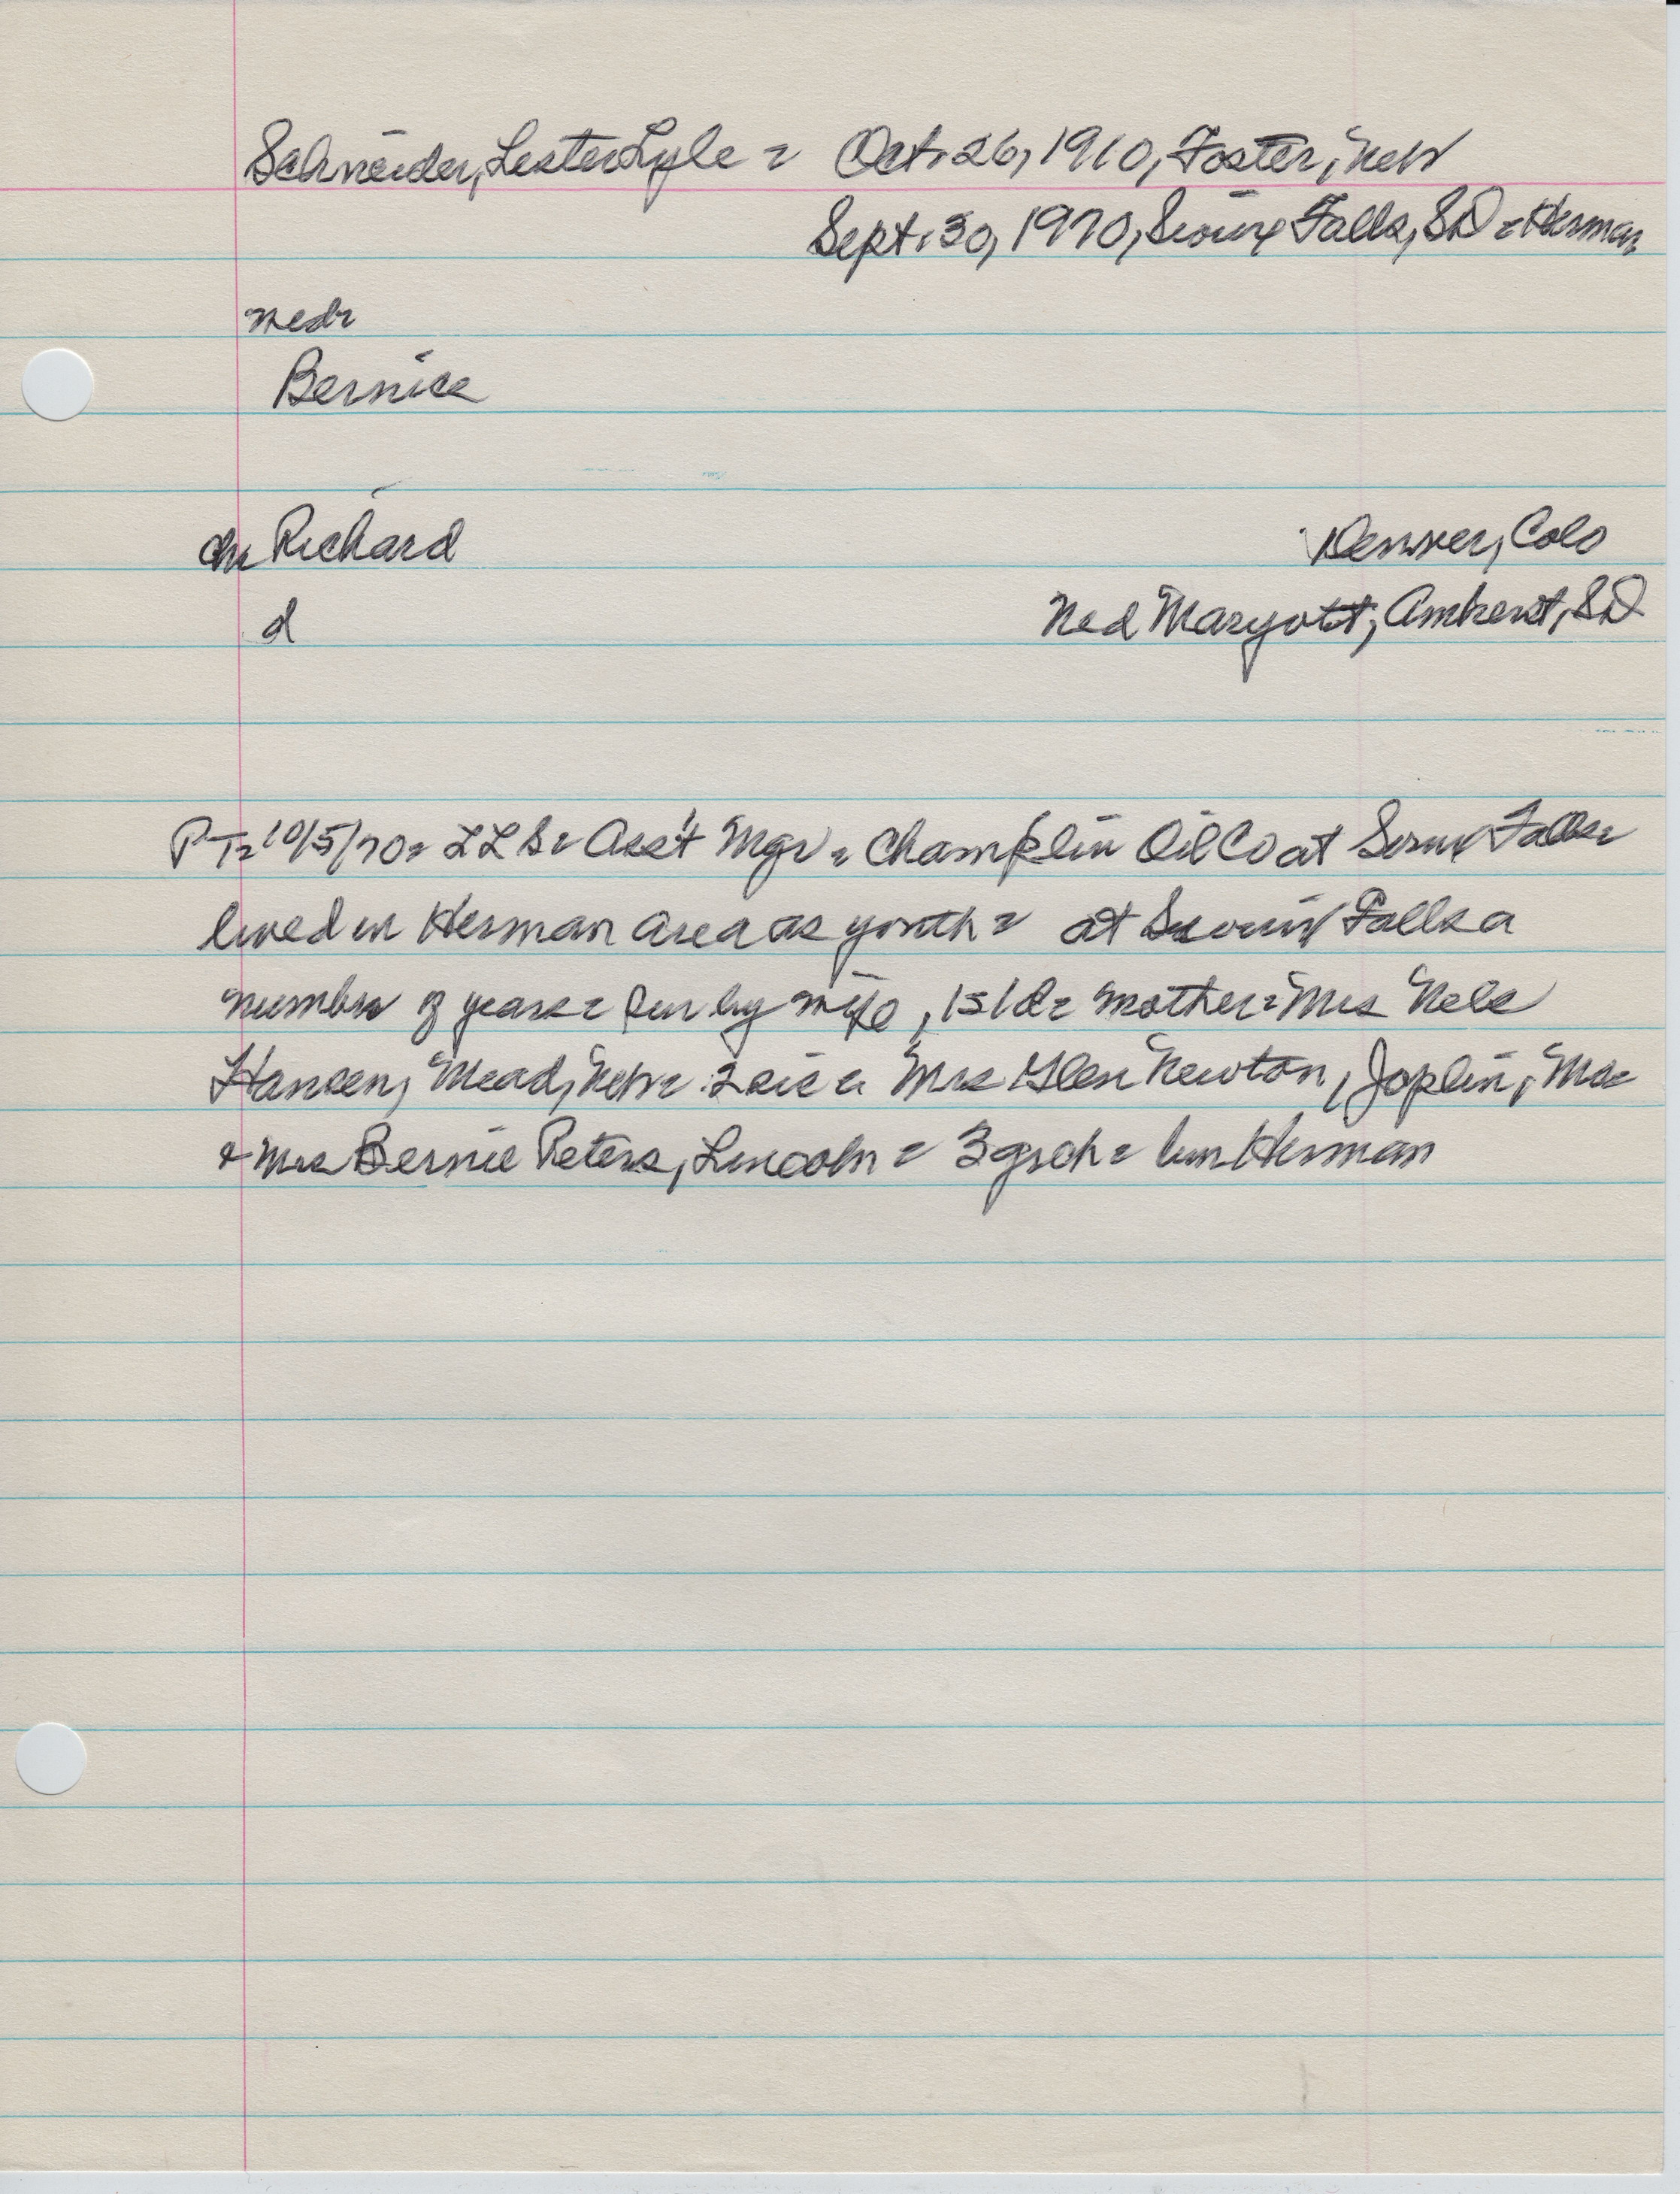 Schneider, Lester Lyle = Oct. 26, 1910, Foster, Nebr
Sept. 30, 1970, Sioux Falls, SD = Herman
Nebr
Bernice
ch Richard Denver, Colo
d Ned Maryott, Amherst, SD
PT= 10/5/70= LLS= Ass't Mgr = Champlin Oil Co at Sioux Falls=
lived in Herman area as youth = at Sioux Falls a
number of years = sur by wife, 1s 1d= mother= Mrs Nels
Hansen, Mead, Nebr= 2 sis = Mrs Glen Newton, Joplin, Mo=
& Mrs Bernie Peters, Lincoln = 3 grch = bur Herman